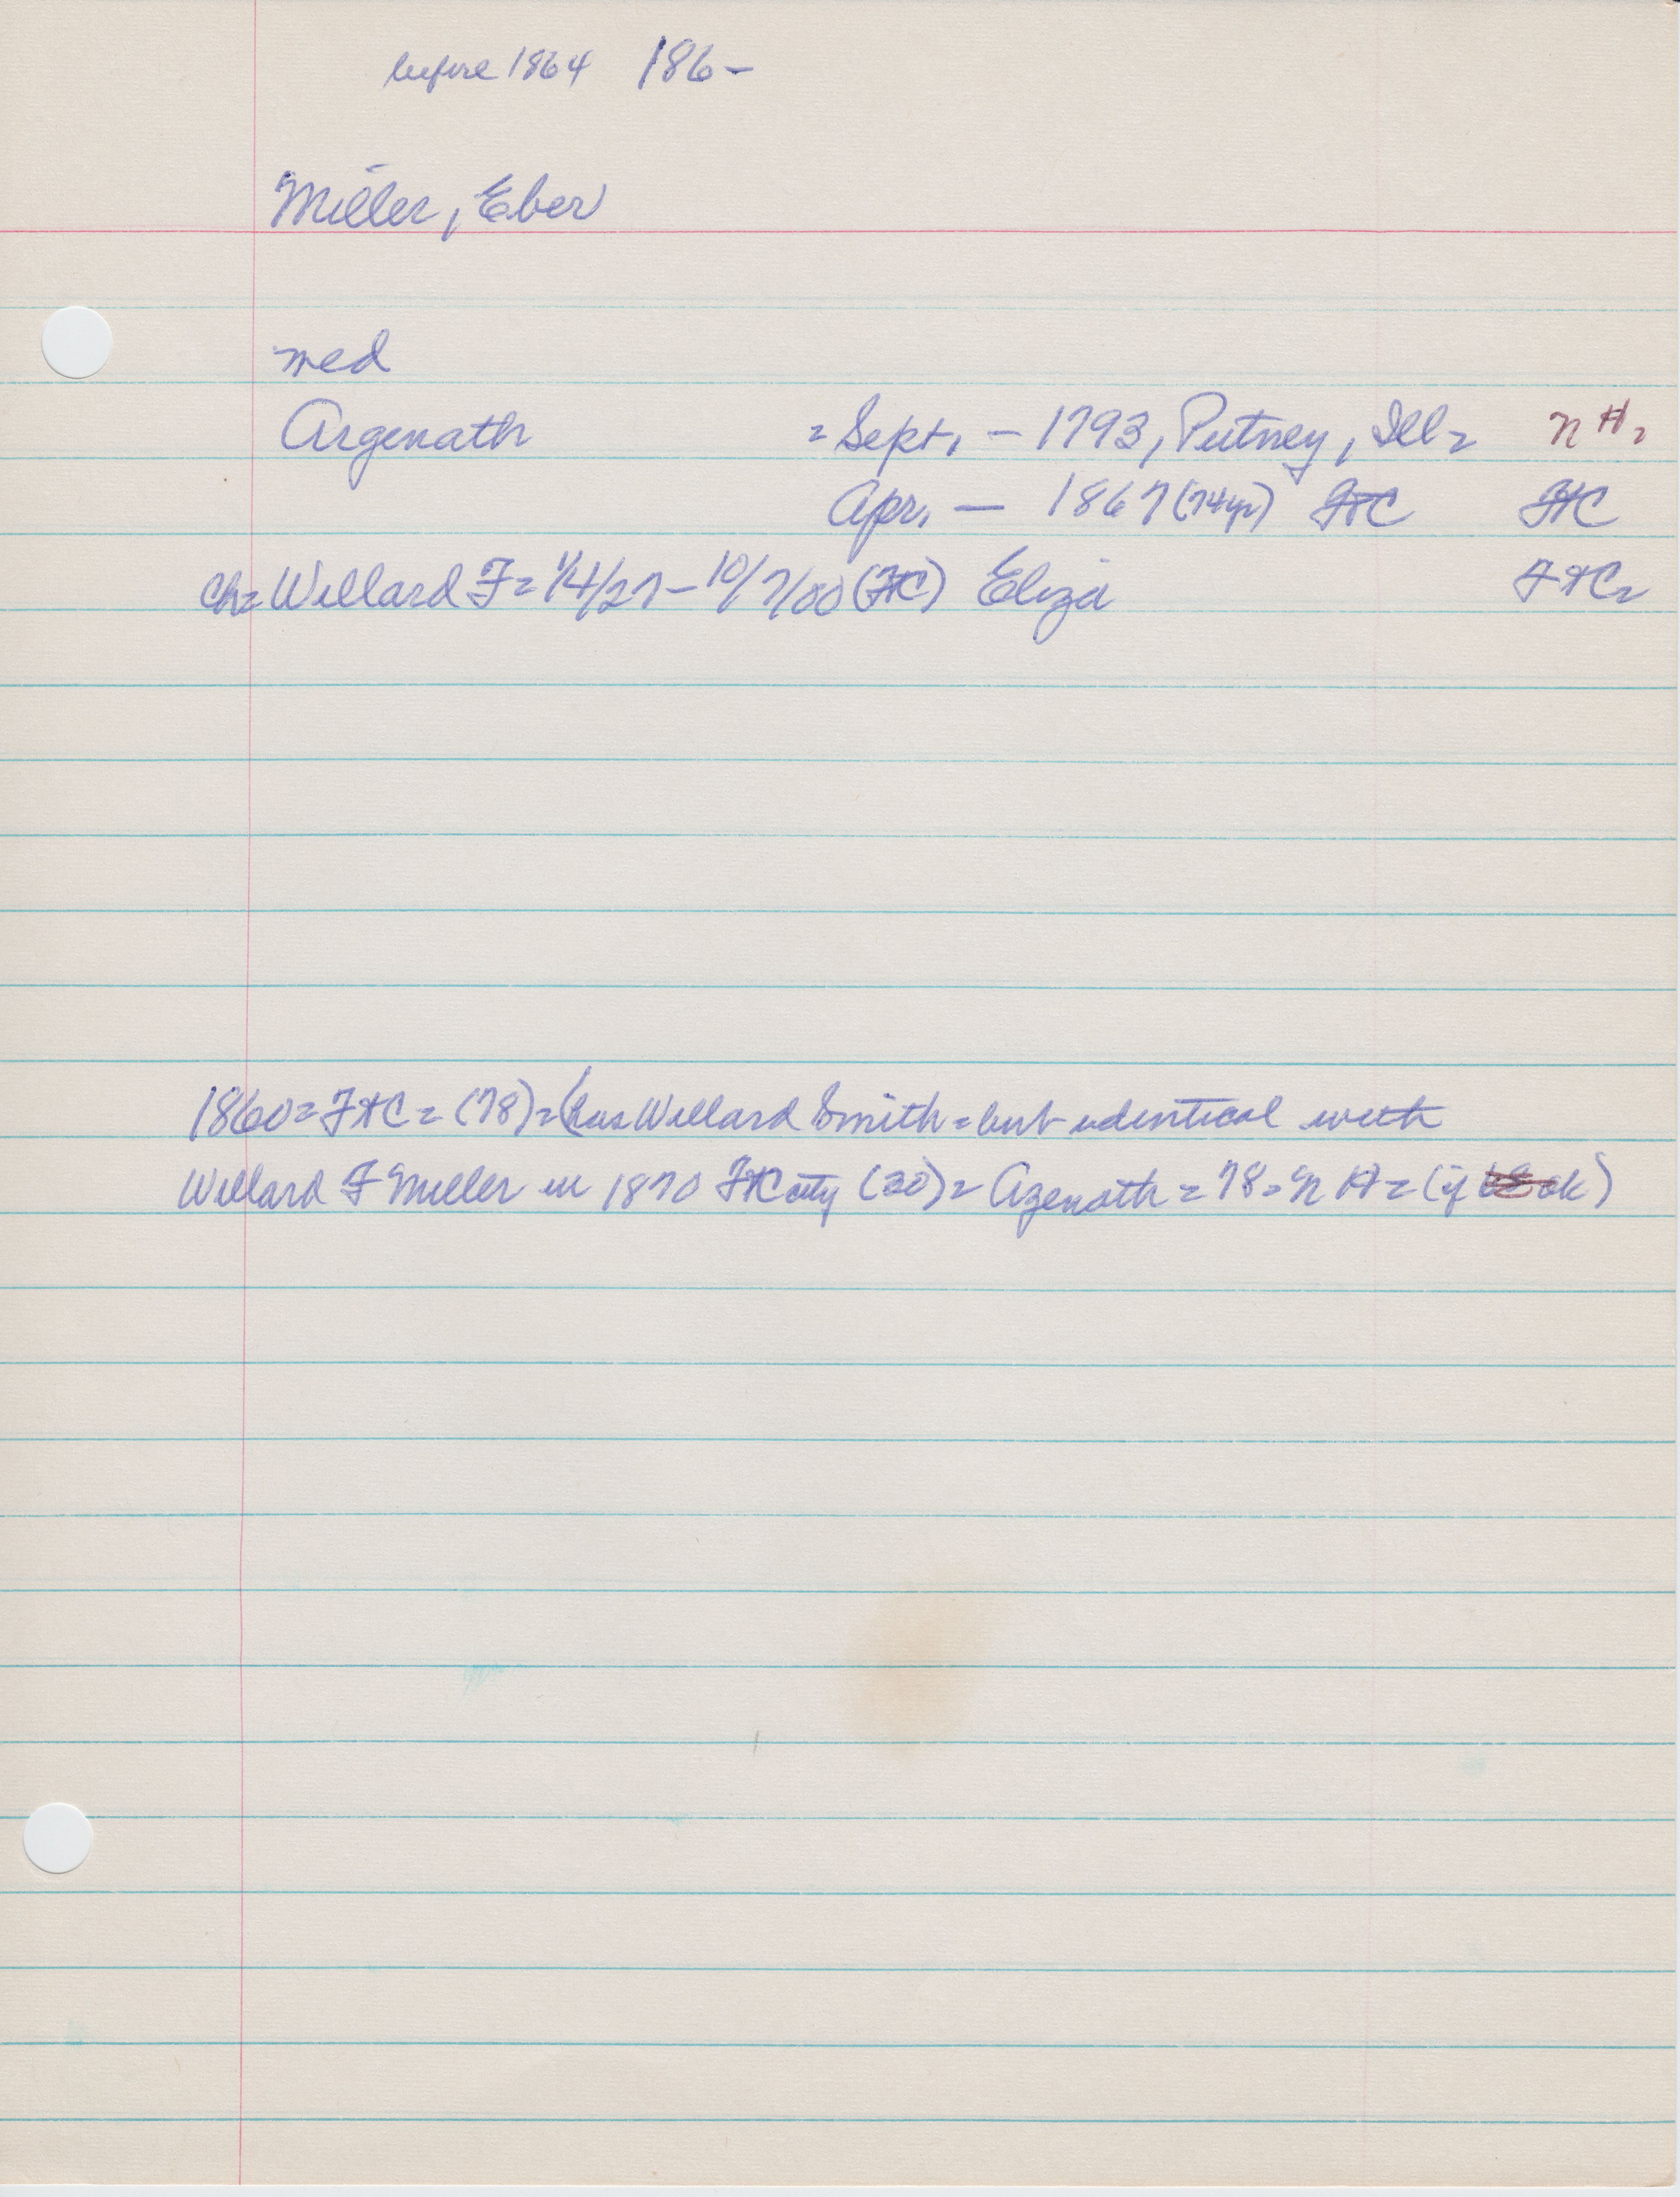 before 1864 186-
Miller, Eber
med
Argenath = Sept, - 1793, Putney, Ill = N H =
Apr, - 1867 (74 yr) FtC FtC
Ch = Willard F = 1/4/27 - 10/7/00 (FtC) Eliza FtC =
1860 = FtC = (78) = (has Willard Smith = but identical with
Willard F Miller in 1870 FtC city (30) = Azenath = 78 = N H = (if ok)